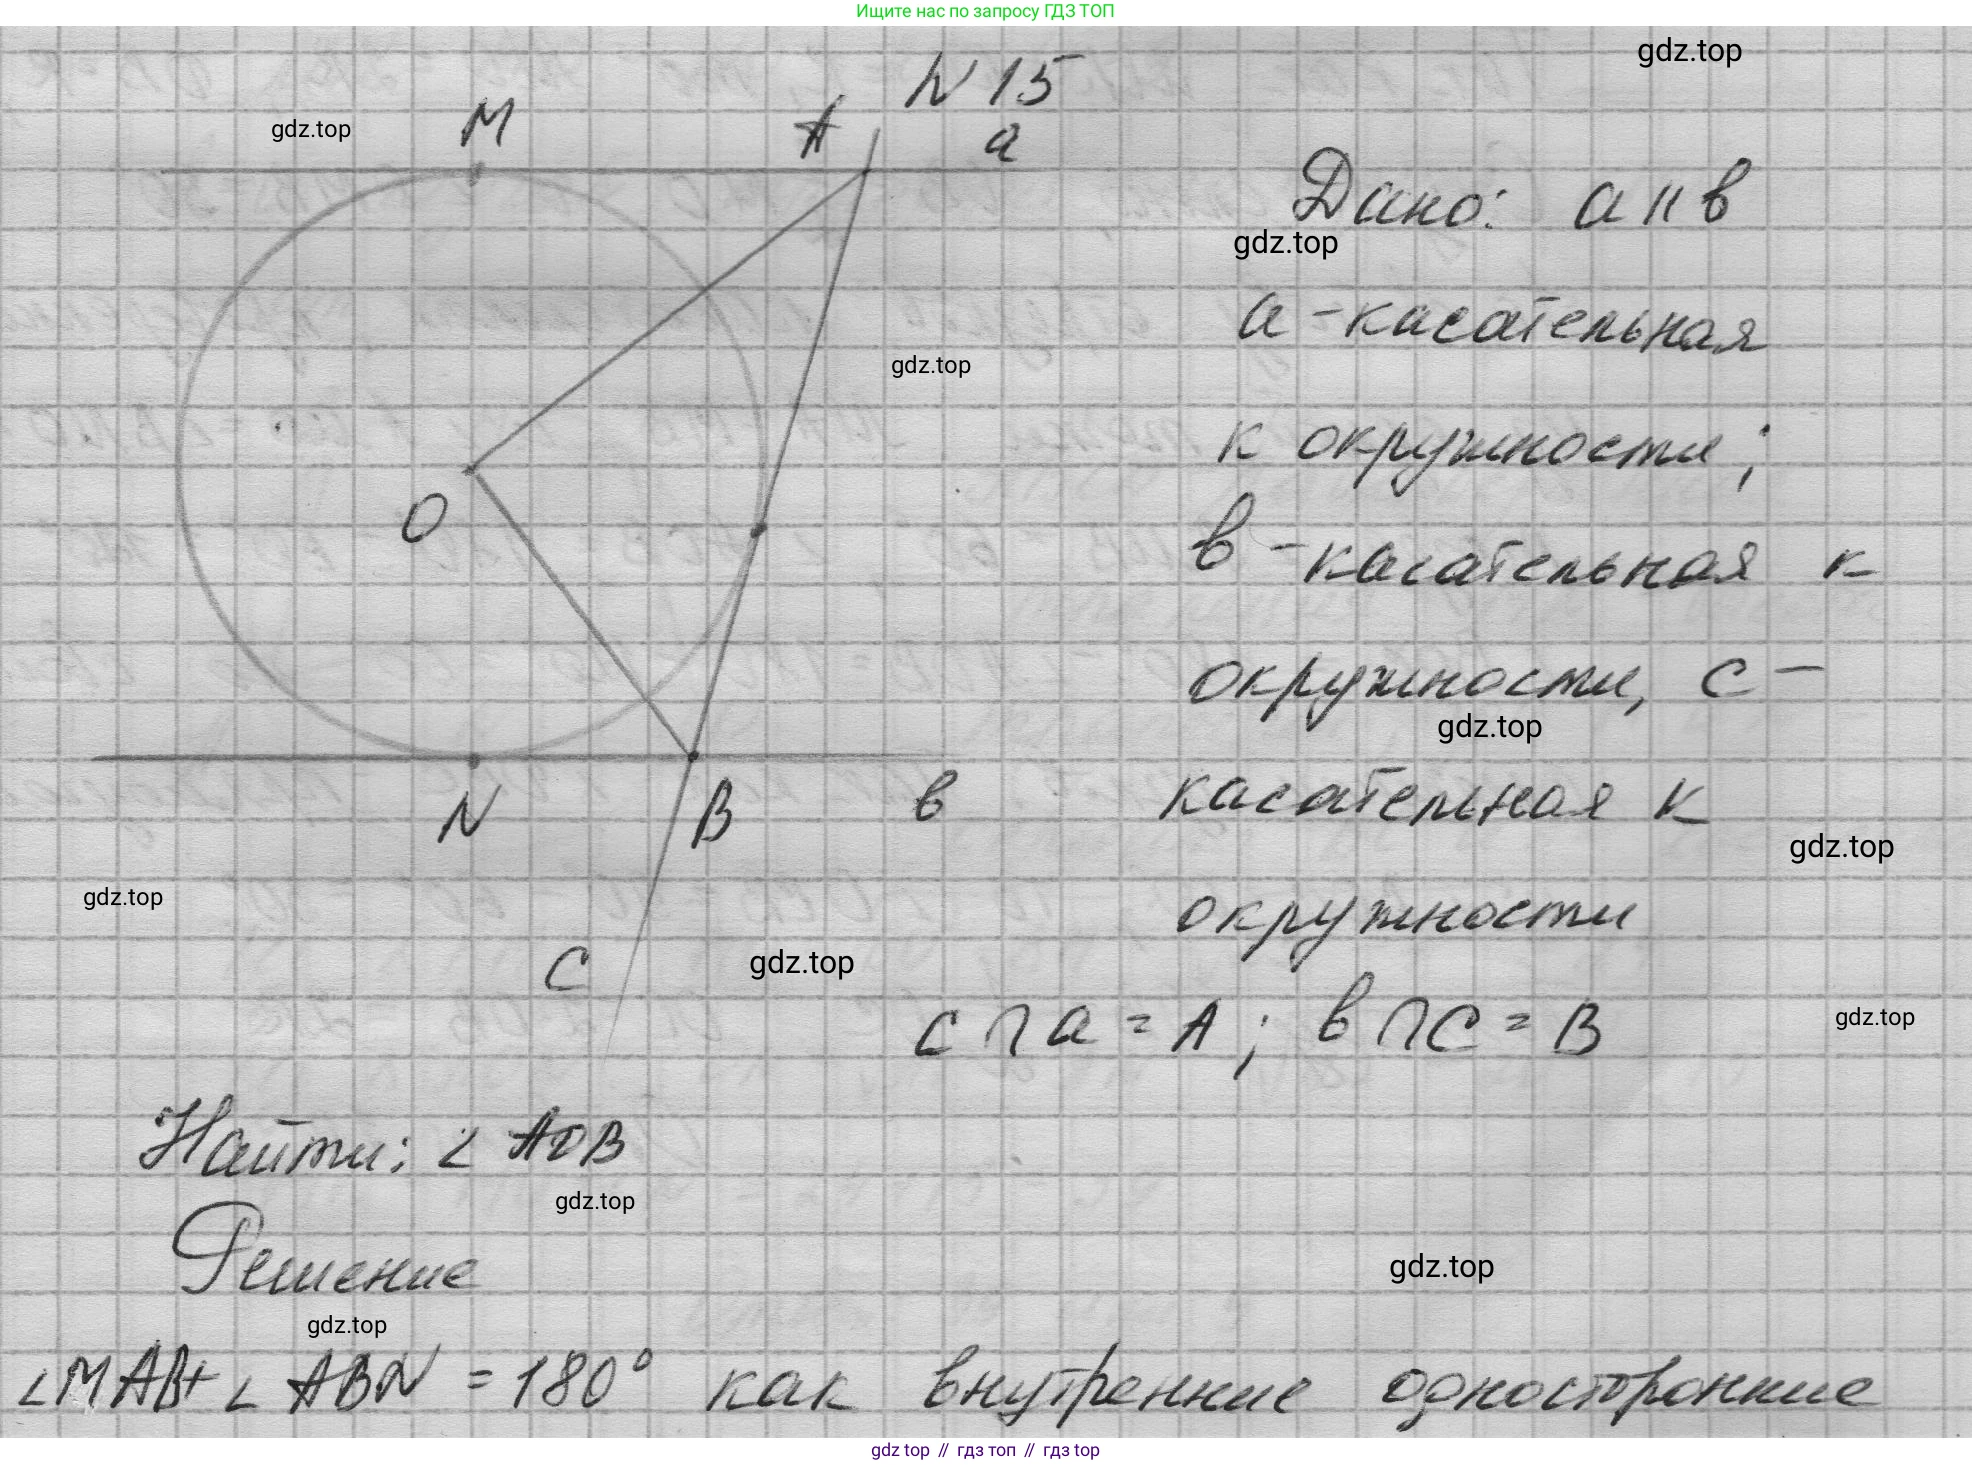 Ищите нас по запросу ГДЗ ТОП
gdz.top
N 15
gdz.top
M
A
a
Дано: a || в
gdz.top
a - касательная
gdz.top
к окружности;
O
в - касательная к
окружности, c -
gdz.top
N
B
в
касательная к
gdz.top
gdz.top
окружности
C
gdz.top
c ∩ a = A; в ∩ C = B
gdz.top
Найти: ∠ AOB
gdz.top
Решение
gdz.top
gdz.top
∠MAB + ∠ ABN = 180° как внутренние односторонние
gdz top // гдз топ // гдз top